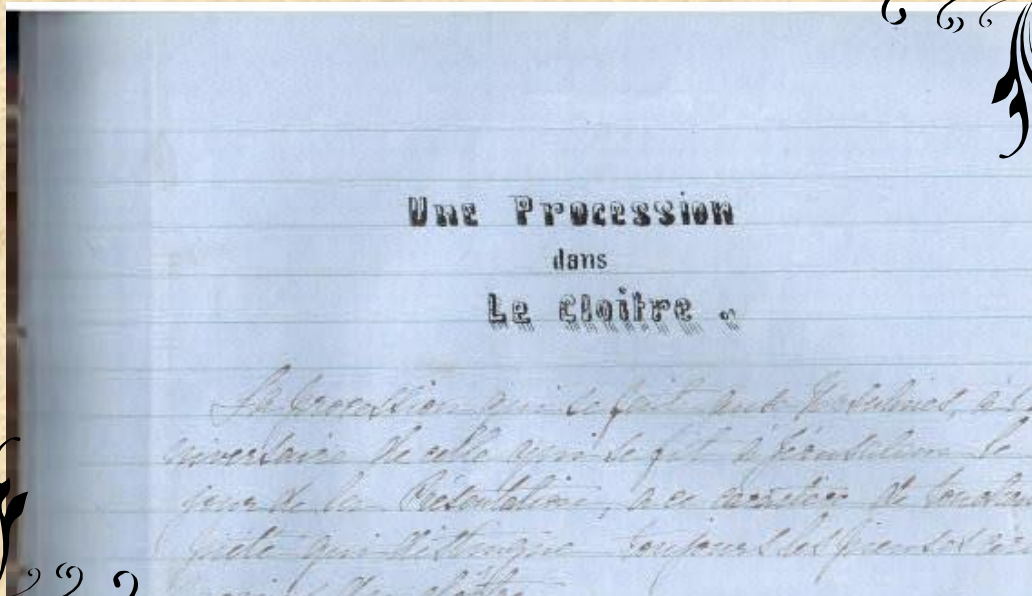 Une Procession
dans
Le Cloitre.
La procession qui se fait aux Ursulines à
niversaire de celle qui se fit à Jérusalem le
jour de la Présentation, a ce caractère de
piété qui distingue toujours les pieuses
du cloître